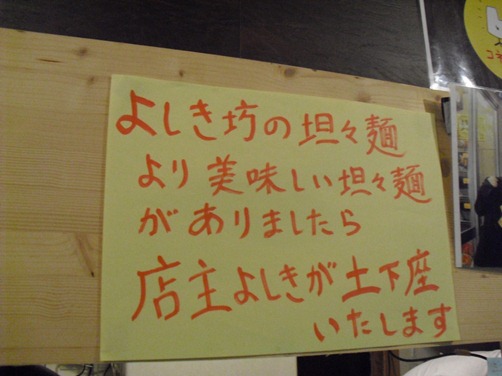 よしき坊の坦々麺
より美味しい坦々麺
がありましたら
店主よしきが土下座
いたします